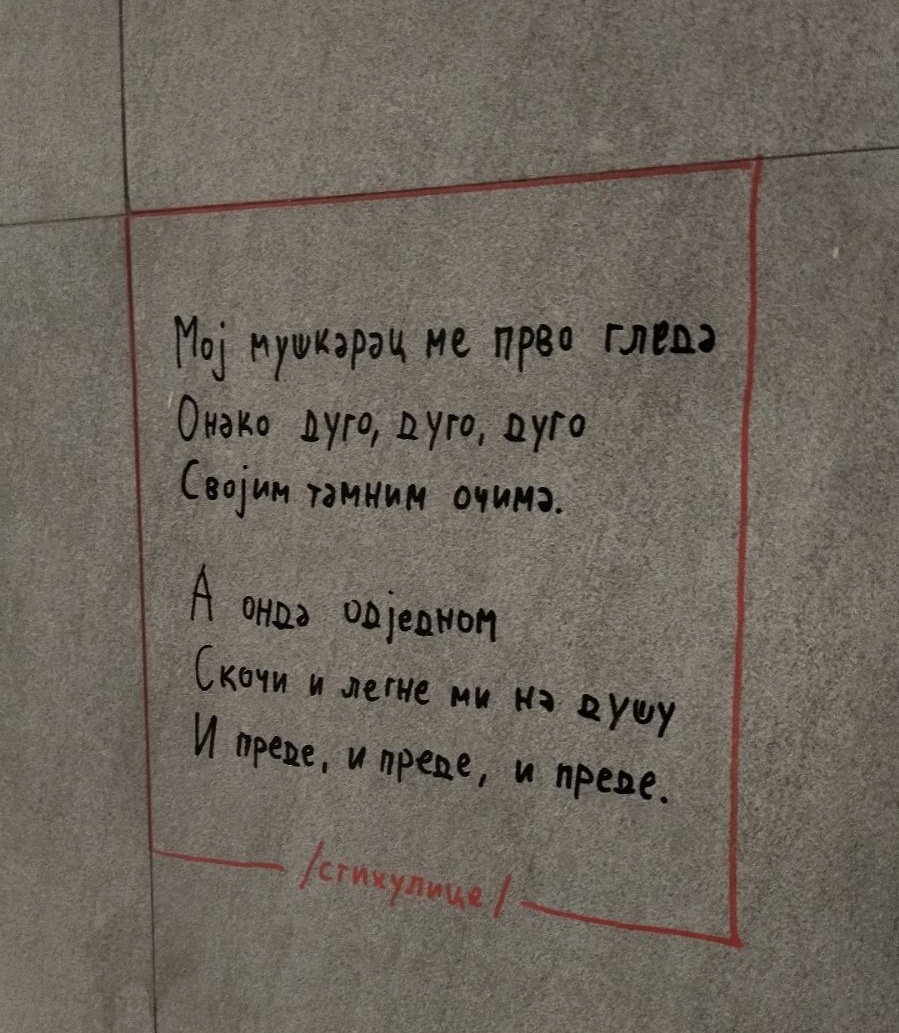 Мој мушкарац ме прво гледа
Онако дуго, дуго, дуго
Својим тамним очима.
А онда одједном
Скочи и легне ми на душу
И преде, и преде, и преде.
/стихулице/